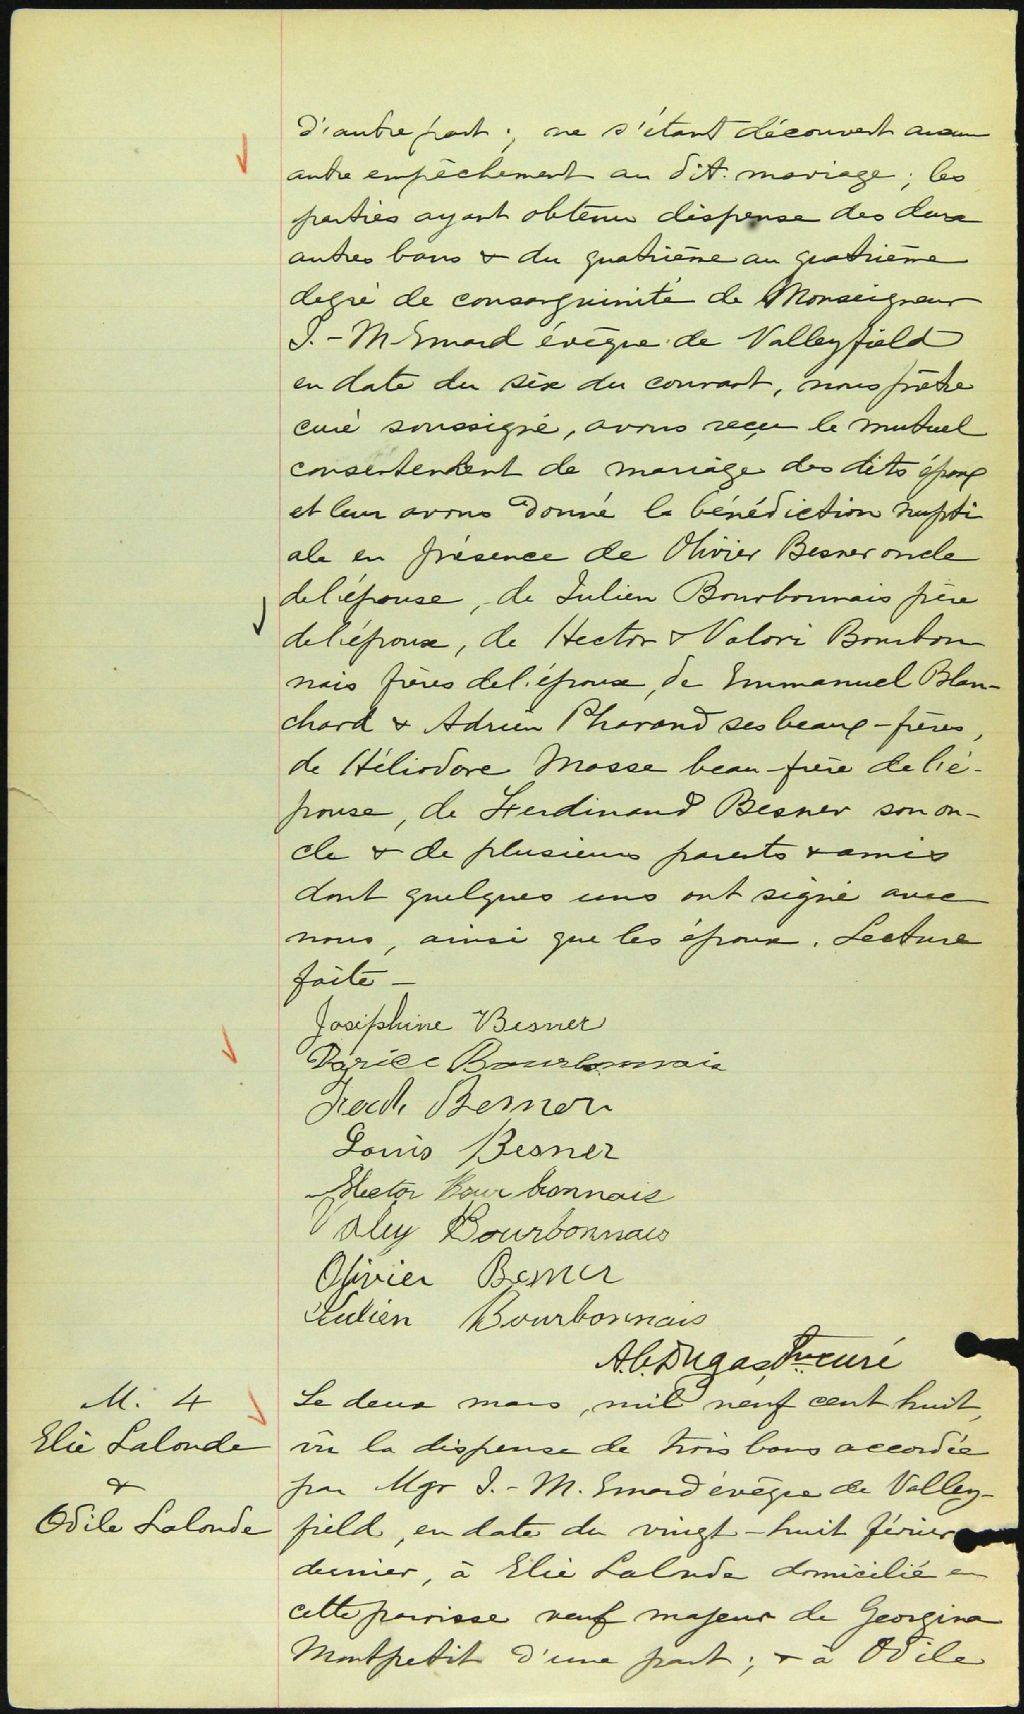 d'autre part; ne s'étant découvert aucun
autre empêchement au dit mariage; les
parties ayant obtenu dispense des deux
autres bans & du quatrième au quatrième
degré de consanguinité de Monseigneur
J.-M. Emard évêque de Valleyfield
en date du six du courant, nous prêtre
curé soussigné, avons reçu le mutuel
consentement de mariage des dits époux
et leur avons donné la bénédiction nupti
ale en présence de Olivier Besner oncle
de l'épouse, de Julien Bourbonnais père
de l'époux, de Hector & Valori Bourbon
nais frères de l'époux, de Emmanuel Blan-
chard & Adrien Pharand ses beaux-frères,
de Héliodore Masse beau-frère de l'é-
pouse, de Ferdinand Besner son on-
cle & de plusieurs parents & amis
dont quelques uns ont signé avec
nous, ainsi que les époux. Lecture
faite -
Joséphine Besner
Bourbonnais
Besner
Louis Besner
Hector Bourbonnais
Valey Bourbonnais
Olivier Besner
Julien Bourbonnais
A.C. Dugas, Ptre curé
M. 4
Elie Lalonde
&
Odile Lalonde
Le deux mars, mil neuf cent huit,
vu la dispense de trois bans accordée
par Mgr J.-M. Emard évêque de Valley-
field, en date du vingt-huit février
dernier, à Elie Lalonde domicilié en
cette paroisse veuf majeur de Georgina
Montpetit d'une part; & à Odile